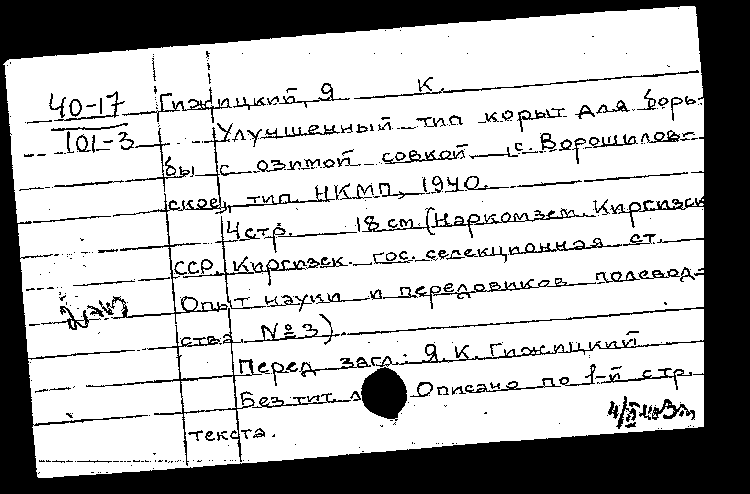 40-17
101-3
Гижицкий, Я К.
Улучшенный тип корыт для борь-
бы с озимой совкой. с. Ворошилов-
ское, тип. НКМП, 1940.
4 стр. 18 см. (Наркомзем. Киргизск
ССР. Киргизск. гос. селекционная ст.
Опыт науки и передовиков полевод-
ства. № 3)
Перед загл.: Я. К. Гижицкий
Без тит. л Описано по 1-й стр.
текста.